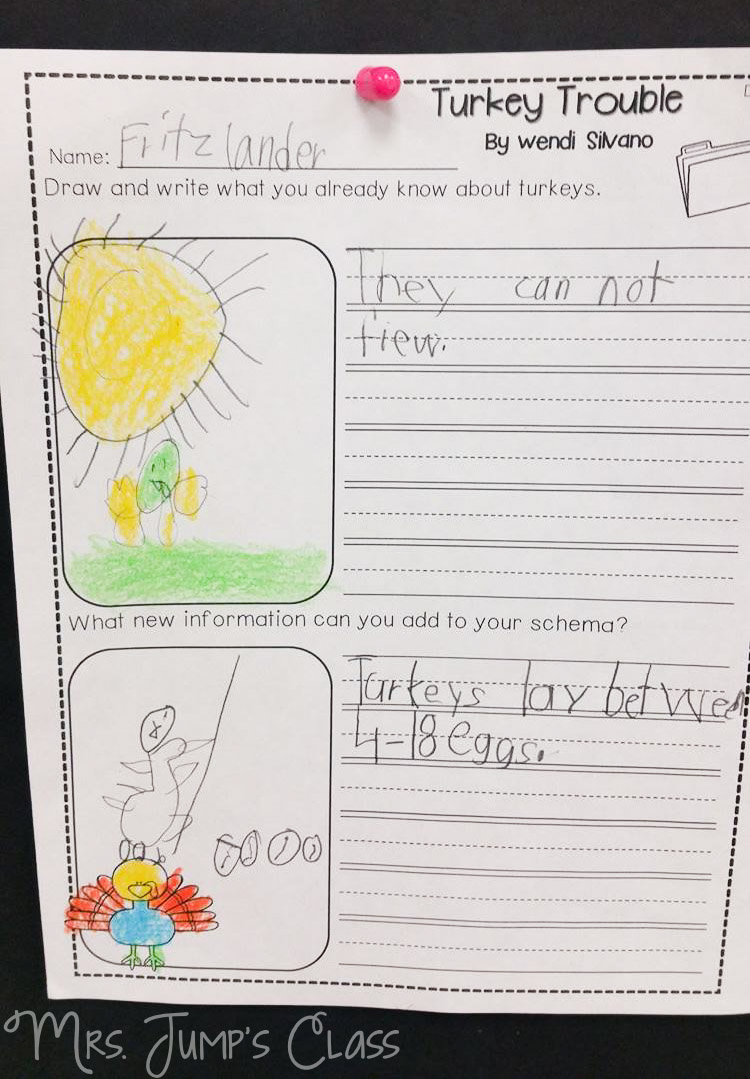 Turkey Trouble
By Wendi Silvano
Name: Fritz lander
Draw and write what you already know about turkeys.
They can not
flew.
What new information can you add to your schema?
Turkeys lay between
4-18 eggs.
Mrs. Jump's Class